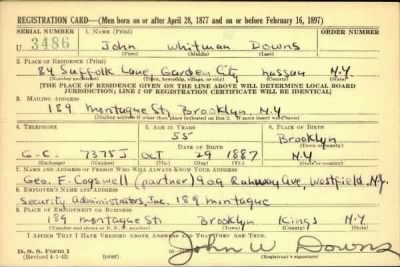 REGISTRATION CARD—(Men born on or after April 28, 1877 and on or before February 16, 1897)
SERIAL NUMBER 1. NAME (Print) ORDER NUMBER
U 3486 John Whitman Downs
(First) (Middle) (Last)
2. PLACE OF RESIDENCE (Print)
84 Suffolk Lane, Garden City Nassau N.Y.
(Number and street) (Town, township, village, or city) (County) (State)
[THE PLACE OF RESIDENCE GIVEN ON THE LINE ABOVE WILL DETERMINE LOCAL BOARD
JURISDICTION; LINE 2 OF REGISTRATION CERTIFICATE WILL BE IDENTICAL]
3. MAILING ADDRESS
189 Montague St. Brooklyn, N.Y.
[Mailing address if other than place indicated on line 2. If same insert word same]
4. TELEPHONE 5. AGE IN YEARS 6. PLACE OF BIRTH
55 Brooklyn
DATE OF BIRTH (Town or county)
G-C. 7375J Oct 29 1887 N.Y.
(Exchange) (Number) (Mo.) (Day) (Yr.) (State or country)
7. NAME AND ADDRESS OF PERSON WHO WILL ALWAYS KNOW YOUR ADDRESS
Geo. F. Cogswell (partner) 909 Ave, Westfield, N.J.
8. EMPLOYER'S NAME AND ADDRESS
Security Administrators, Inc. 189 Montague
9. PLACE OF EMPLOYMENT OR BUSINESS
189 Montague St. Brooklyn Kings N.Y.
(Number and street or R. F. D. number) (Town) (County) (State)
I AFFIRM THAT I HAVE VERIFIED ABOVE ANSWERS AND THAT THEY ARE TRUE.
D. S. S. Form 1
(Revised 4-1-42) (over) John W Downs
(Registrant's signature)